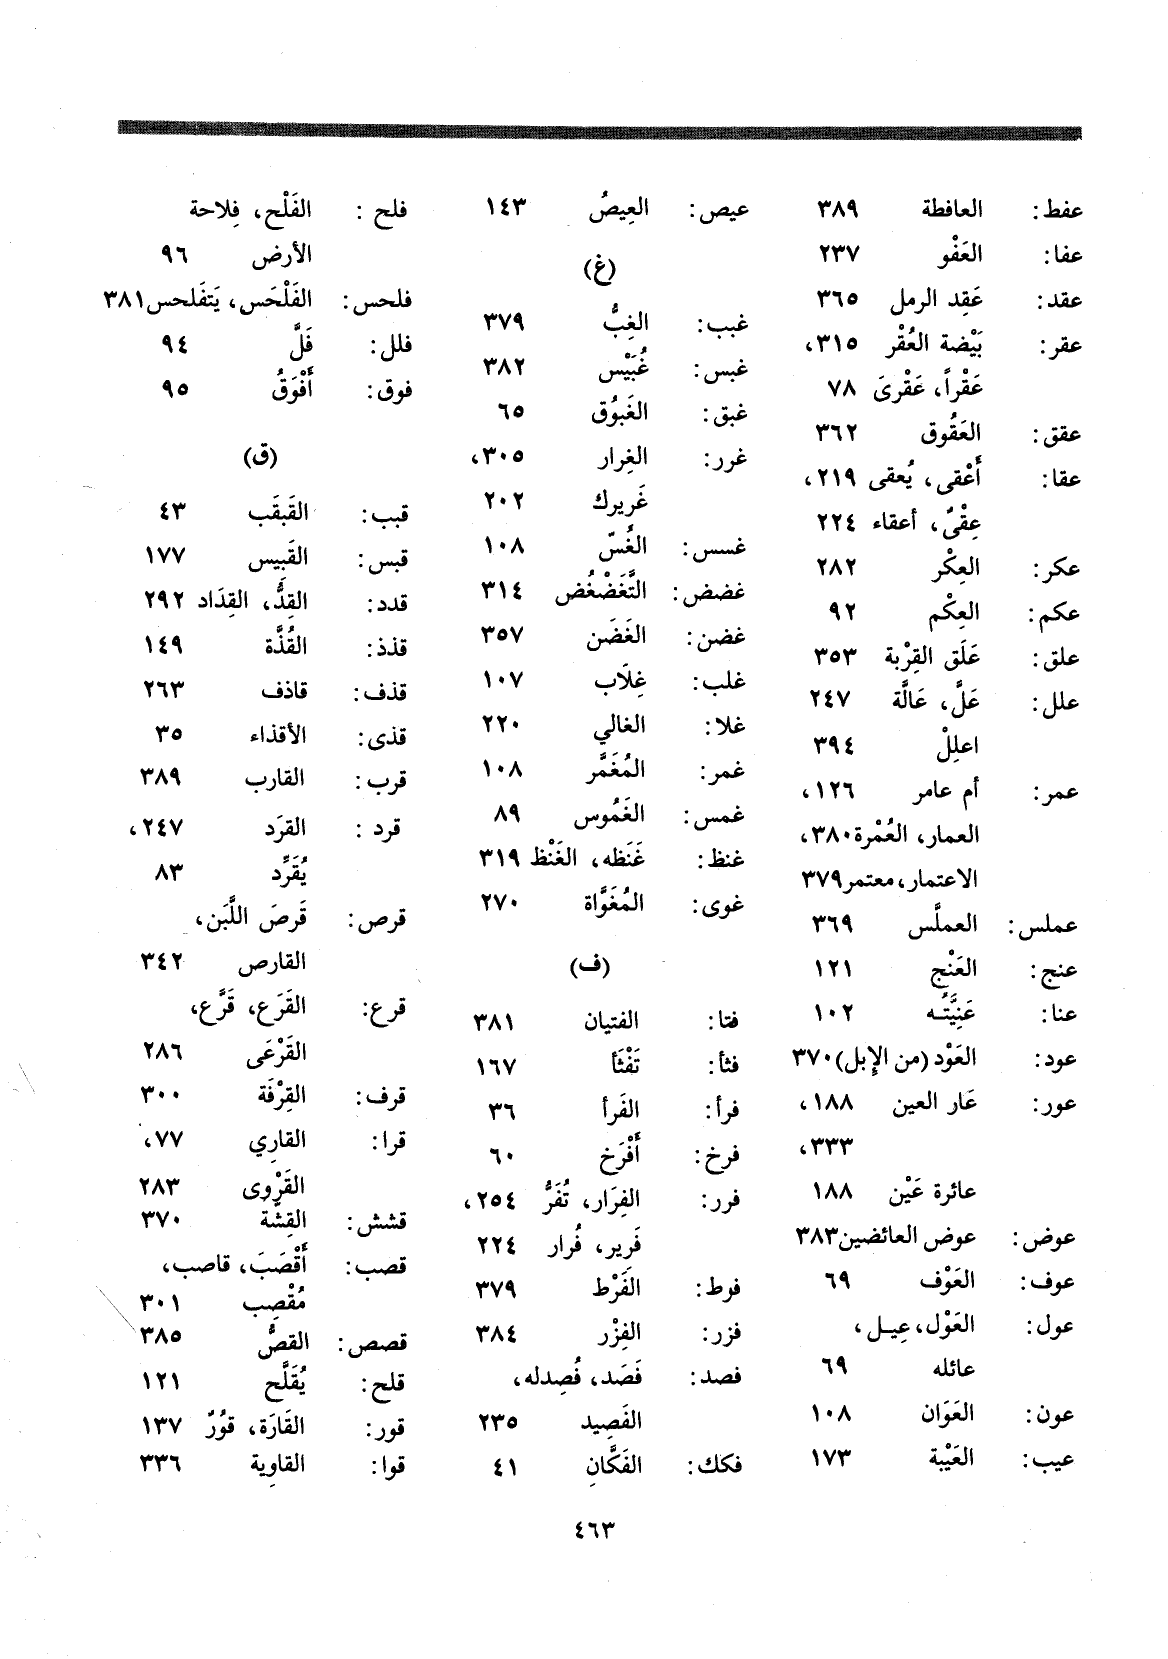 عفط: العافطة ٣٨٩
عفا: العَفْو ٢٣٧
عقد: عَقِد الرمل ٣٦٥
عقر: بَيْضة العُقْر ٣١٥،
عَقْراً، عَقْرىَ ٧٨
عقق: العَقُوق ٣٦٢
عقا: أَعْقى، يُعقى ٢١٩،
عِقْيٌ، أعقاء ٢٢٤
عكر: العِكْر ٢٨٢
عكم: العِكْم ٩٢
علق: عَلَق القِرْبة ٣٥٣
علل: عَلَّ، عَالَّة ٢٤٧
اعلِلْ ٣٩٤
عمر: أم عامر ١٢٦،
العمار، العُمْرة ٣٨٠،
الاعتمار، معتمر ٣٧٩
عملس: العملَّس ٣٦٩
عنج: العَنْج ١٢١
عنا: عَنِيَّتُه ١٠٢
عود: العَوْد (من الإبل) ٣٧٠
عور: عَار العين ١٨٨،
٣٣٣،
عائرة عَيْن ١٨٨
عوض: عوض العائضين ٣٨٣
عوف: العَوْف ٦٩
عول: العَوْل، عِيـل،
عائله ٦٩
عون: العَوَان ١٠٨
عيب: العَيْبة ١٧٣
عيص: العِيصُ ١٤٣
(غ)
غبب: الغِبُّ ٣٧٩
غبس: غُبَيْس ٣٨٢
غبق: الغَبُوُق ٦٥
غرر: الغِرار ٣٠٥،
غَرِيرك ٢٠٢
غسس: الغُسّ ١٠٨
غضض: التَّغَضْغُض ٣١٤
غضن: الغَضَن ٣٥٧
غلب: غِلَاب ١٠٧
غلا: الغالي ٢٢٠
غمر: المُغَمَّر ١٠٨
غمس: الغَمُوس ٨٩
غنظ: غَنَظه، الغَنْظ ٣١٩
غوى: المُغَوَّاة ٢٧٠
(ف)
فتا: الفتيان ٣٨١
فثأ: تَفْثَأ ١٦٧
فرأ: الفَرأ ٣٦
فرخ: أَفْرَخ ٦٠
فرر: الفِرَار، تُفَرُّ ٢٥٤،
فَرِير، فُرار ٢٢٤
فوط: الفَرْط ٣٧٩
فزر: الفِزْر ٣٨٤
فصد: فَصَد، فُصِدله،
الفَصِيد ٢٣٥
فكك: الفَكَّانِ ٤١
فلح: الفَلْح، فِلاحة
الأرض ٩٦
فلحس: الفَلْحَس، يَتفَلحس ٣٨١
فلل: فَلَّ ٩٤
فوق: أَفْوَقُ ٩٥
(ق)
قبب: القَبقَب ٤٣
قبس: القَبِيس ١٧٧
قدد: القِدُّ، القِدَاد ٢٩٢
قذذ: القُذَّة ١٤٩
قذف: قاذف ٢٦٣
قذى: الأقذاء ٣٥
قرب: القارب ٣٨٩
قرد: القرَد ٢٤٧،
يُقَرِّد ٨٣
قرص: قَرصَ اللَّبَن،
القارص ٣٤٢
قرع: القَرَع، قَرَّع،
القَرْعَى ٢٨٦
قرف: القِرْفَة ٣٠٠
قرا: القارِي ٧٧،
القَرْوِى ٢٨٣
قشش: القِشَّة ٣٧٠
قصب: أَقْصَبَ، قاصب،
مُقْصِب ٣٠١
قصص: القصُّ ٣٨٥
قلح: يُقَلَّح ١٢١
قور: القَارَة، قوُرٌ ١٣٧
قوا: القاوِية ٣٣٦
٤٦٣